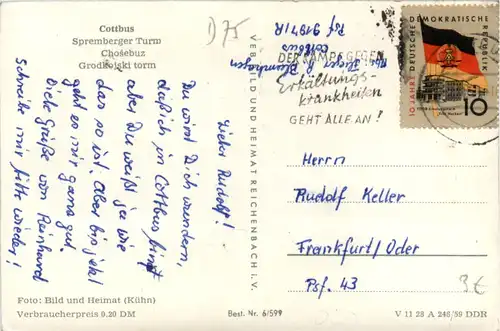 Cottbus
Spremberger Turm
Chośebuz
Grodkojski torm
D 75
Lieber Rudolf!
Du wirst Dich wundern,
daß ich in Cottbus bin
aber Du weißt ja wie
das so ist. Aber bis jetzt
geht es mir ganz gut.
Viele Grüße von Reinhard
Schreibe mir bitte wieder!
Foto: Bild und Heimat (Kühn)
Verbraucherpreis 0.20 DM
VEB BILD UND HEIMAT REICHENBACH I. V.
Best. Nr. 6/599
Cottbus
Psf 9197/R
DER KAMPF GEGEN
Erkältungs-
krankheiten
GEHT ALLE AN!
10 JAHRE DEUTSCHE DEMOKRATISCHE REPUBLIK
10
Herrn
Rudolf Keller
Frankfurt/Oder
Psf. 43
3€
V 11 28 A 246/59 DDR